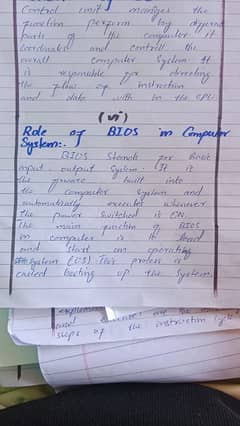 Control unit manages the
function perform by different
parts of the computer it
coordinates and controll the
overall computer system. It
is responsible for directing
the flow of instruction
and data with in the CPU.
(vi)
Role of BIOS in Computer
System:.
BIOS Stands for Basic
input output System. It is
the built into
the computer System and
automatically executes whenever
the power Switched is ON.
The main function of BIOS
in computer is to load
and start an operating
System (OS). This process is
called booting up the System.
and
steps of the instruction cycle